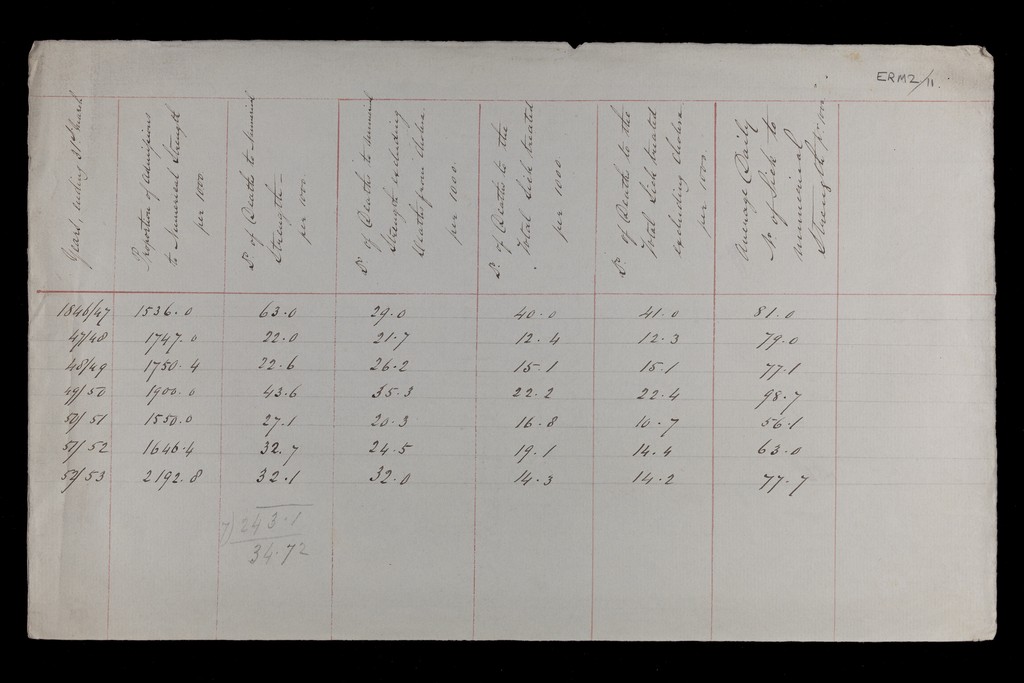 ERM2/11.
Years, ending 31st March
Proportion of Admissions
to Numerical Strength
per 1000
Do. of Deaths to numerical
Strength
per 1000.
Do. of Deaths to numerical
Strength excluding
deaths from Cholera
per 1000.
Do. of Deaths to the
Total Sick treated
per 1000
Do. of Deaths to the
Total Sick treated
excluding Cholera
per 1000.
Average Daily
No. of Sick to
numerical
Strength pr. 1000
1846/47 1536.0 63.0 29.0 40.0 41.0 81.0
47/48 1747.0 22.0 21.7 12.4 12.3 79.0
48/49 1750.4 22.6 26.2 15.1 15.1 77.1
49/50 1900.0 43.6 35.3 22.2 22.4 98.7
50/51 1550.0 27.1 20.3 16.8 10.7 56.1
51/52 1646.4 32.7 24.5 19.1 14.4 63.0
52/53 2192.8 32.1 32.0 14.3 14.2 77.7
7)243.1
34.72